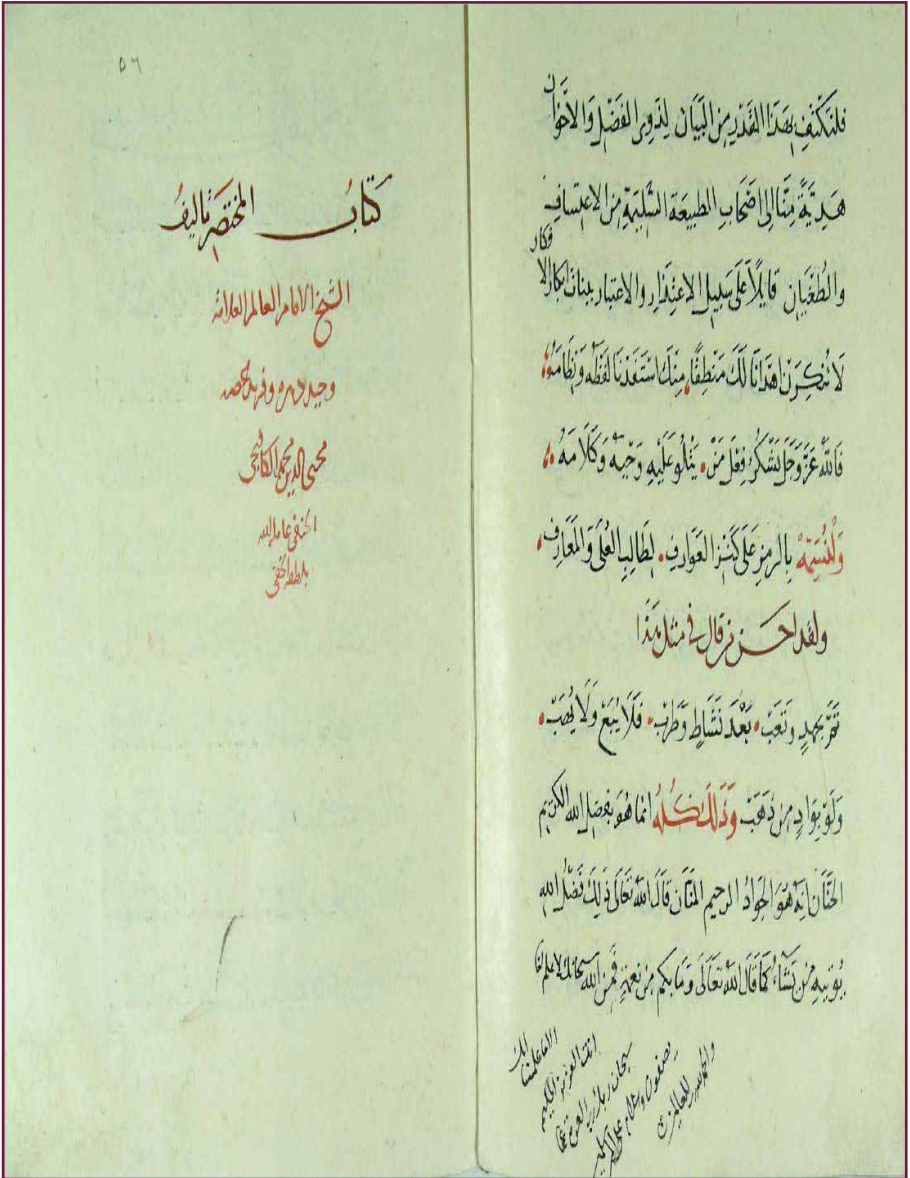 فلنكتف بهذا القَدْرِ مِنَ البَيَان لِذَوِي الفَضْلِ وَالاخْوَان
هَدِيَّةً مِنَّا اِلى اصْحَابِ الطبيعَة السَّلِيمَةِ مِنَ الاعتِسَافِ
والطُّغْيَان قَايلاً عَلى سَبيلِ الاعْتِذَارِ والاعتبار بلسان ابكار الافكار
لَا تُنْكِرَنْ اهْدَانَا لَكَ مَنْطِقًا مِنْكَ اسْتَفَدْنَا لَفْظَهُ وَنِظَامَهُ
فَاللهُ عَزَّ وَجَلَّ يَشْكُرُ فِعْلَ مَنْ يَتْلُو عَلَيْهِ وَحْيَهُ وَكَلَامَهُ
بالرمزِ عَلَى كَنْزِ العَوَارِفِ لِطَالِبِ العُلَى وَالمَعَارِفِ
ولقد احسن من قال في مثل هَذا
بجهدٍ وتَعَبْ بَعْدَ نَشَاطٍ وَطَرَبْ فَلَا يُبَعْ وَلَا يُهَبْ
وَلَوْ بِوَادٍ مِنْ ذَهَبْ وَذَلكَ كُلّهُ انما هُوَ بفضل الله الكريم
الحَنَّان اِنه هُوَ الجَوَادُ الرحيم المَنَّان قَالَ اللهُ تَعَالَى ذَلِكَ فَضْلُ اللهِ
يُوتيهِ مَنْ يَشَاءُ كَمَا قَالَ اللهُ تَعَالَى وَمَا بِكُم مِنْ نِعْمَةٍ فَمِنَ اللهِ سبحانك لا علم لنا
الا ما علمتنا انك
انت العزيز الحكيم
سبحان ربك رب العزة عما
يصفون وسلام على المرسلين
والحمد لله رب العالمين
٥٦
كتابُ المختصر تاليفُ
الشيخ الامام العالم العلامة
وحيد دهره وفريد عصره
محيى الدين محمد الكافيجى
الحنفي عامله الله
بلطفه الخفي